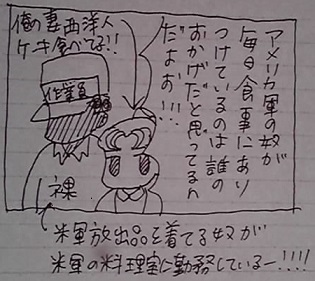 アメリカ軍の奴が
毎日食事にあり
つけているのは誰の
おかげだと思ってるん
だよお!!!
俺の妻西洋人
ケーキ食べてる!!
作業員
裸
米軍放出品を着てる奴が
米軍の料理室に勤務しているー!!!!